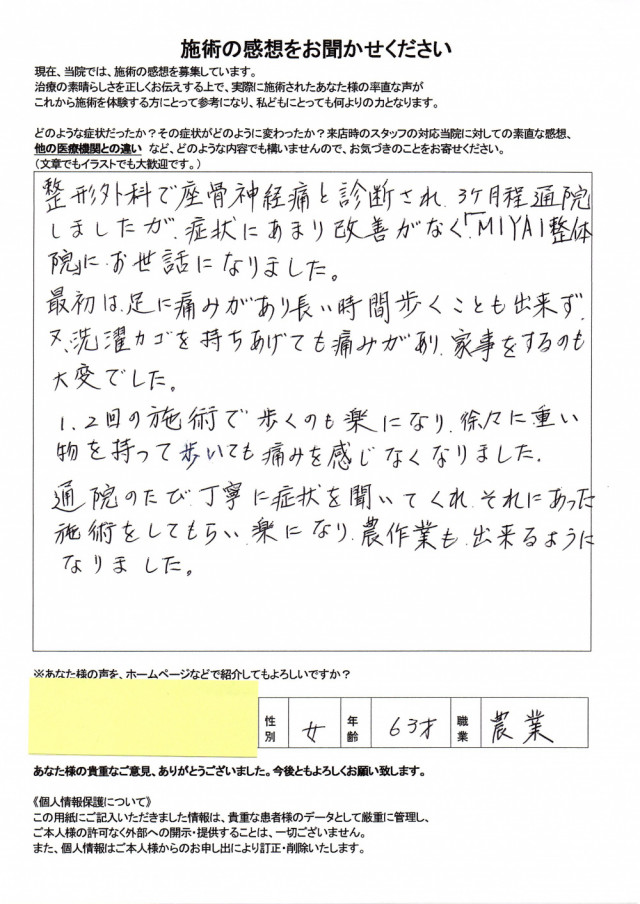 施術の感想をお聞かせください
現在、当院では、施術の感想を募集しています。
治療の素晴らしさを正しくお伝えする上で、実際に施術されたあなた様の率直な声が
これから施術を体験する方にとって参考になり、私どもにとっても何よりの力となります。
どのような症状だったか?その症状がどのように変わったか?来店時のスタッフの対応当院に対しての素直な感想、
他の医療機関との違い など、どのような内容でも構いませんので、お気づきのことをお寄せください。
(文章でもイラストでも大歓迎です。)
整形外科で座骨神経痛と診断され、3ヶ月程通院
しましたが、症状にあまり改善がなく、「MIYAI整体
院」にお世話になりました。
最初は、足に痛みがあり長い時間歩くことも出来ず、
又、洗濯カゴを持ちあげても痛みがあり、家事をするのも
大変でした。
1、2回の施術で歩くのも楽になり、徐々に重い
物を持って歩いても痛みを感じなくなりました。
通院のたび、丁寧に症状を聞いてくれ、それにあった
施術をしてもらい、楽になり、農作業も、出来るように
なりました。
※あなた様の声を、ホームページなどで紹介してもよろしいですか?
性別 女 年齢 63才 職業 農業
あなた様の貴重なご意見、ありがとうございました。今後ともよろしくお願い致します。
《個人情報保護について》
この用紙にご記入いただきました情報は、貴重な患者様のデータとして厳重に管理し、
ご本人様の許可なく外部への開示・提供することは、一切ございません。
また、個人情報はご本人様からのお申し出により訂正・削除いたします。